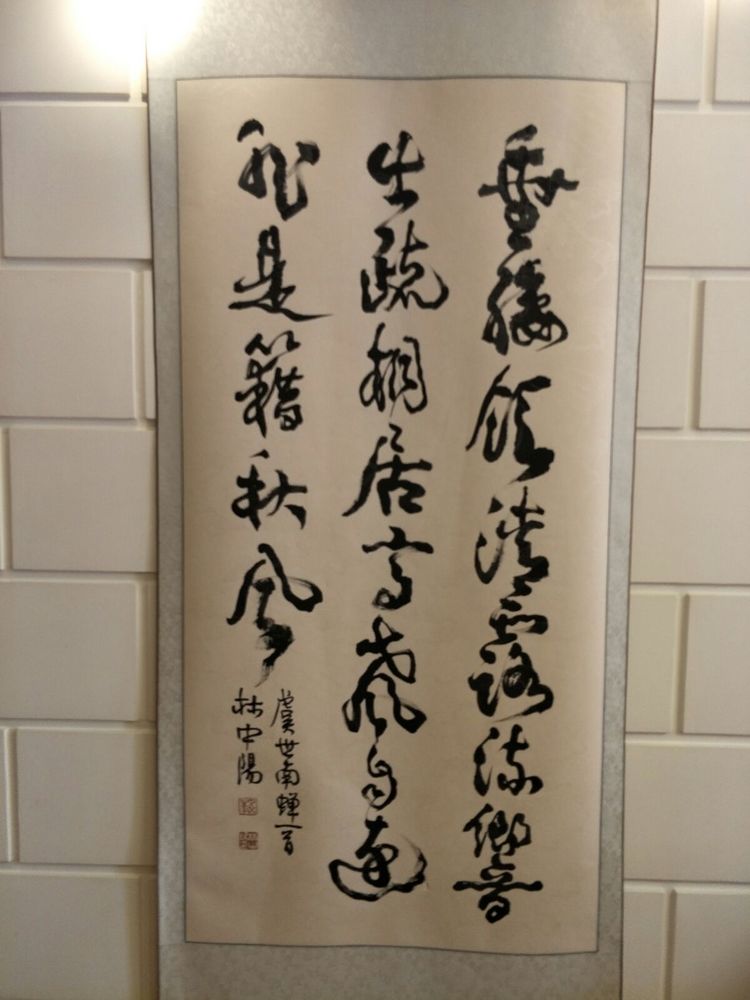 垂緌飲清露流響
出疏桐居高聲自遠
非是籍秋風
虞世南蟬一首
林中陽